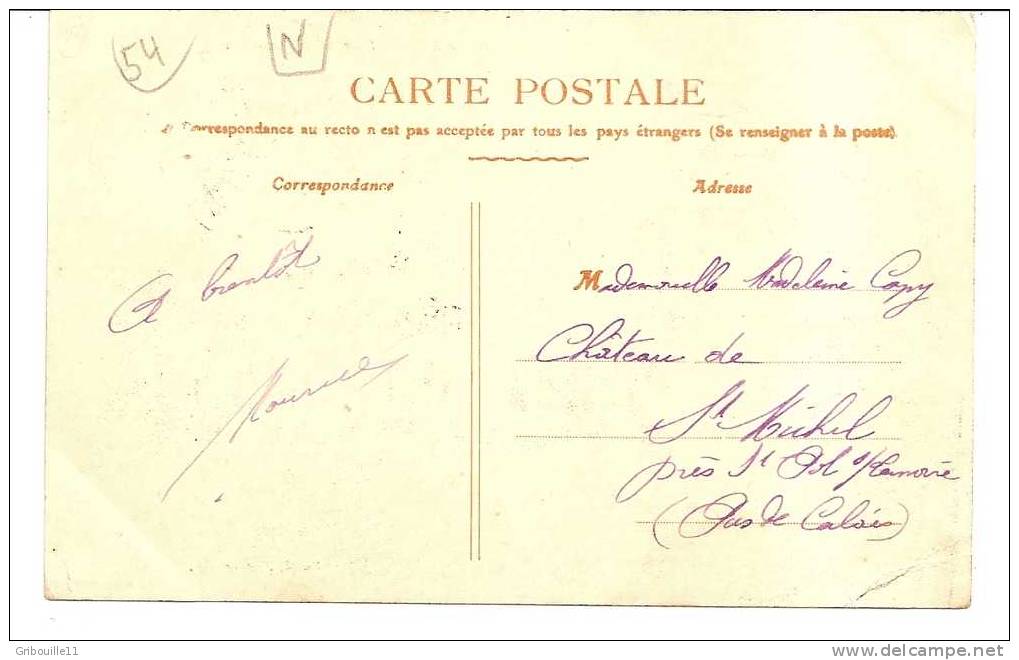 54
N
CARTE POSTALE
Correspondance au recto n'est pas acceptée par tous les pays étrangers (Se renseigner à la poste)
Correspondance
Adresse
A bientôt
Maurice
Mademoiselle Madeleine Capy
Château de
St Michel
près St Pol s/
(Pas de Calais)
Gribouille11
www.delcampe.net